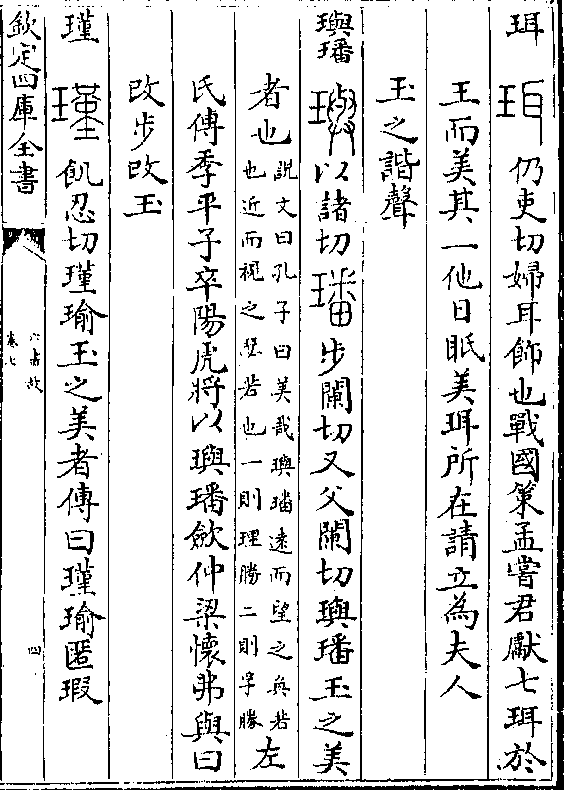 珥 珥仍吏切婦耳飾也戰國策孟嘗君獻七珥於
王而美其一他日眂美珥所在請立為夫人
玉之諧聲
璵璠 璵以諸切璠步闌切又父闌切璵璠玉之美
者也說文曰孔子曰美哉璵璠遠而望之奐若
也近而視之瑟若也一則理勝二則孚勝左
氏傳季平子卒陽虎將以璵璠斂仲梁懷弗與曰
改步改玉
瑾 瑾飢忍切瑾瑜玉之美者傳曰瑾瑜匿瑕
欽定四庫全書
六書故
卷七
四